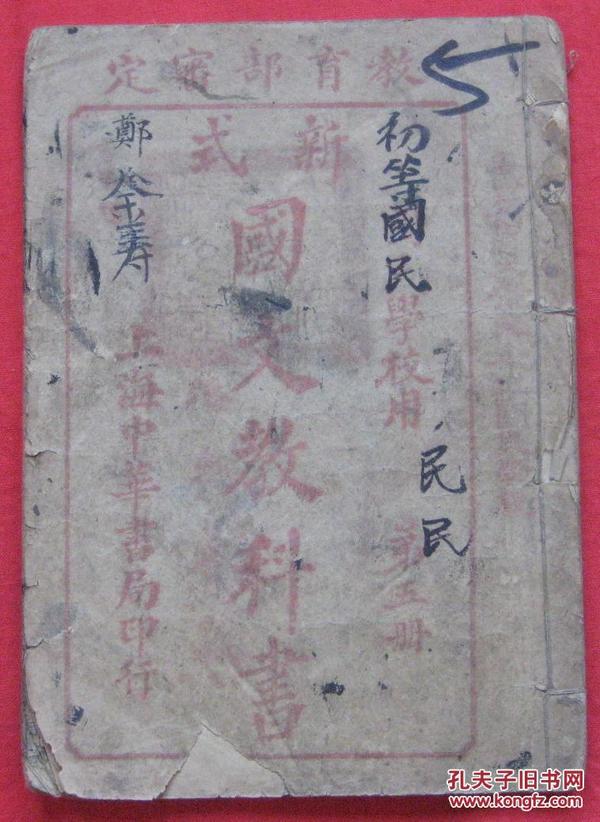 教育部審定
新式
初等國民學校用
第五冊
民民
國文教科書
鄭
上海中華書局印行
孔夫子旧书网
www.kongfz.com